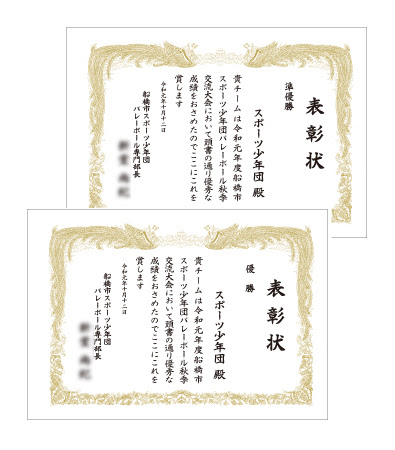 表彰状
準優勝
スポーツ少年団 殿
貴チームは令和元年度船橋市
スポーツ少年団バレーボール秋季
交流大会において頭書の通り優秀な
成績をおさめたのでここにこれを
賞します
令和元年十月十二日
船橋市スポーツ少年団
バレーボール専門部長
表彰状
優勝
スポーツ少年団 殿
貴チームは令和元年度船橋市
スポーツ少年団バレーボール秋季
交流大会において頭書の通り優秀な
成績をおさめたのでここにこれを
賞します
令和元年十月十二日
船橋市スポーツ少年団
バレーボール専門部長